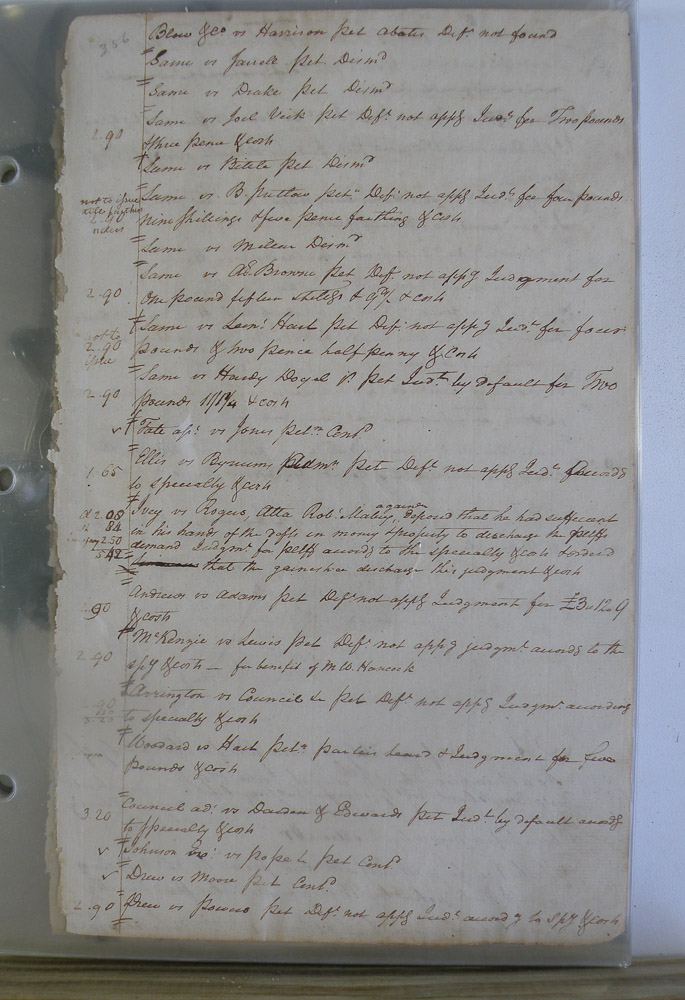 356
Blow &Co vs Harrison pet abates Deft. not found
Same vs Jarrell pet. Dismd
Same vs Drake pet Dismd
Same vs Joel Vick pet Deft. not appg Judt. for Two pounds
2.90 three pence & costs
Same vs Bittle pet Dismd
Same vs B. petn. Deft. not appg Judt. for four pounds
not to issue
2.90 Nine shillings & five pence farthing & costs
Same vs Millar Dismd
Same vs Browne pet Deft not appg Judgment for
2.90 One pound fifteen shillgs & & costs
Same vs Hart pet Deft. not appg Judt. for four
not to issue
2.90 pounds & two pence half penny & Costs
Same vs Hardy Doyel pet Judt. by default for Two
2.90 pounds & costs
Tate vs Jones petn. Contd.
Ellis vs Bynums Admr. pet Deft. not appg Judt. accordg
1.65 to specialty & costs
2.08 Ivey vs Rogers, Atta Robt. again deposed that he had sufficient
84 in his hands of the defts in money & property to discharge the pltfs
2.50 demand Judgmt. for pltff accordg to the specialty & costs & ordered
5.42 that the garnishee discharge this judgment & costs
Andrews vs Adams pet Deft. not appg Judgment for £3..12..9
.90 & costs
McKenzie vs Lewis pet Deft. not appg judgmt. accordg to the
2.90 spy & costs — for benefit of M. W. Hancock
Arrington vs Council pet Deft. not appg Judgmt. according
3.20 to specialty & costs
Woodard vs Hart petn. parties heard & Judgment for five
pounds & costs
Council vs Darden & Edwards pet Judt. by default accordg
3.20 to specialty & costs
Johnson vs Pope pet Contd.
Drew vs Moore pet Contd.
2.90 Drew vs Powers pet Deft. not appg Judt. accordg to spy & costs